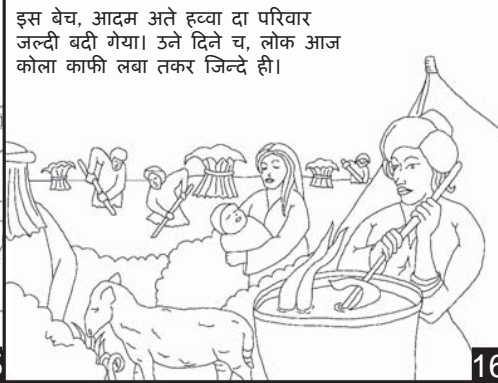 इस बेच, आदम अते हव्वा दा परिवार
जल्दी बदी गेया। उने दिने च, लोक आज
कोला काफी लबा तकर जिन्दे ही।
16